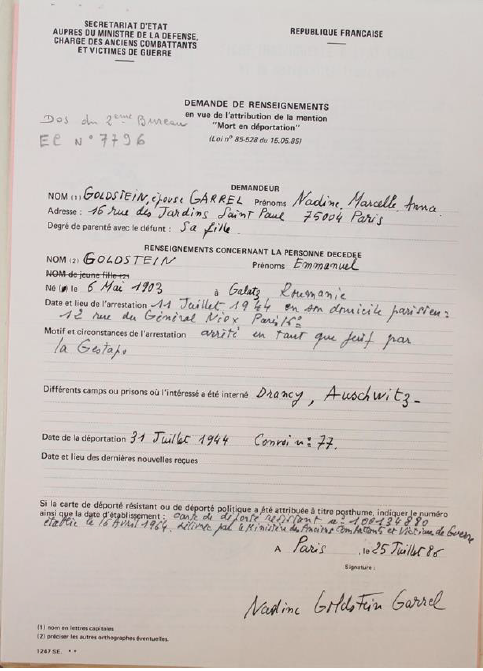 SECRETARIAT D'ETAT
AUPRES DU MINISTRE DE LA DEFENSE,
CHARGE DES ANCIENS COMBATTANTS
ET VICTIMES DE GUERRE
REPUBLIQUE FRANCAISE
DEMANDE DE RENSEIGNEMENTS
en vue de l'attribution de la mention
"Mort en déportation"
(Loi n° 85-528 du 15.05.85)
Dos du 2ème Bureau
EC N° 7796
DEMANDEUR
NOM (1) GOLDSTEIN, épouse GARREL Prénoms Nadine, Marcelle Anna
Adresse : 16 rue des Jardins Saint Paul 75004 Paris
Degré de parenté avec le défunt : Sa fille
RENSEIGNEMENTS CONCERNANT LA PERSONNE DECEDEE
NOM (2) GOLDSTEIN Prénoms Emmanuel
NOM de jeune fille (2)
Né le 6 Mai 1903 à Galatz Roumanie
Date et lieu de l'arrestation 11 Juillet 1944 en son domicile parisien :
12 rue du Général Niox Paris 16e
Motif et circonstances de l'arrestation arrêté en tant que juif par
la Gestapo
Différents camps ou prisons où l'intéressé a été interné Drancy, Auschwitz -
Date de la déportation 31 Juillet 1944 Convoi n° 77.
Date et lieu des dernières nouvelles reçues
Si la carte de déporté résistant ou de déporté politique a été attribuée à titre posthume, indiquer le numéro
ainsi que la date d'établissement : carte de déporté résistant n°
établie le 16 Avril 1964 délivrée par le Ministère des Anciens Combattants et Victimes de Guerre
A Paris le 25 Juillet 86
Signature :
Nadine Goldstein Garrel
(1) nom en lettres capitales
(2) préciser les autres orthographes éventuelles.
1247 SE. **